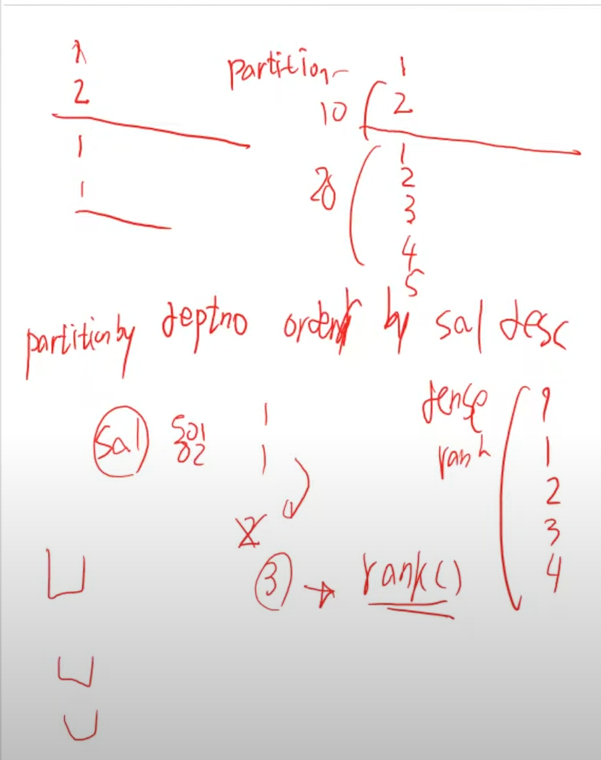 1
2
1
1
partition
10
1
2
20
1
2
3
4
5
partition by deptno order by sal desc
sal
1
1
2
3 → rank()
dense
rank
1
1
2
3
4